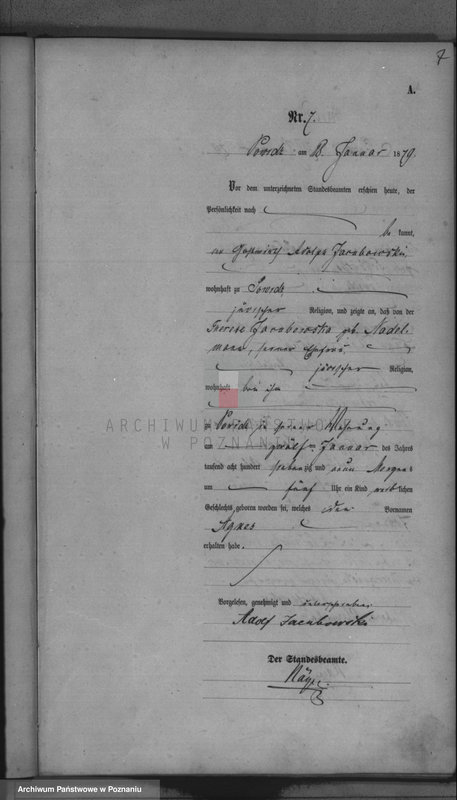 7
A.
Nr. 7.
Powidz am 13. Januar 1879
Vor dem unterzeichneten Standesbeamten erschien heute, der
Persönlichkeit nach
be kannt,
der Gastwirth Adolph Jacubowski,
wohnhaft zu Powidz,
jüdischer Religion, und zeigte an, daß von der
Jacubowska geb. Nadel-
mann, seiner Ehefrau
jüdischer Religion,
wohnhaft bei ihm
ARCHIWUM PAŃSTWOWE
W POZNANIU
zu Powidz in seiner Wohnung
am zwölften Januar des Jahres
tausend acht hundert siebenzig und neun Morgens
um fünf Uhr ein Kind weiblichen
Geschlechts geboren worden sei, welches den Vornamen
Agnes
erhalten habe.
Vorgelesen, genehmigt und unterschrieben
Adolf Jacubowski
Der Standesbeamte.
Archiwum Państwowe w Poznaniu